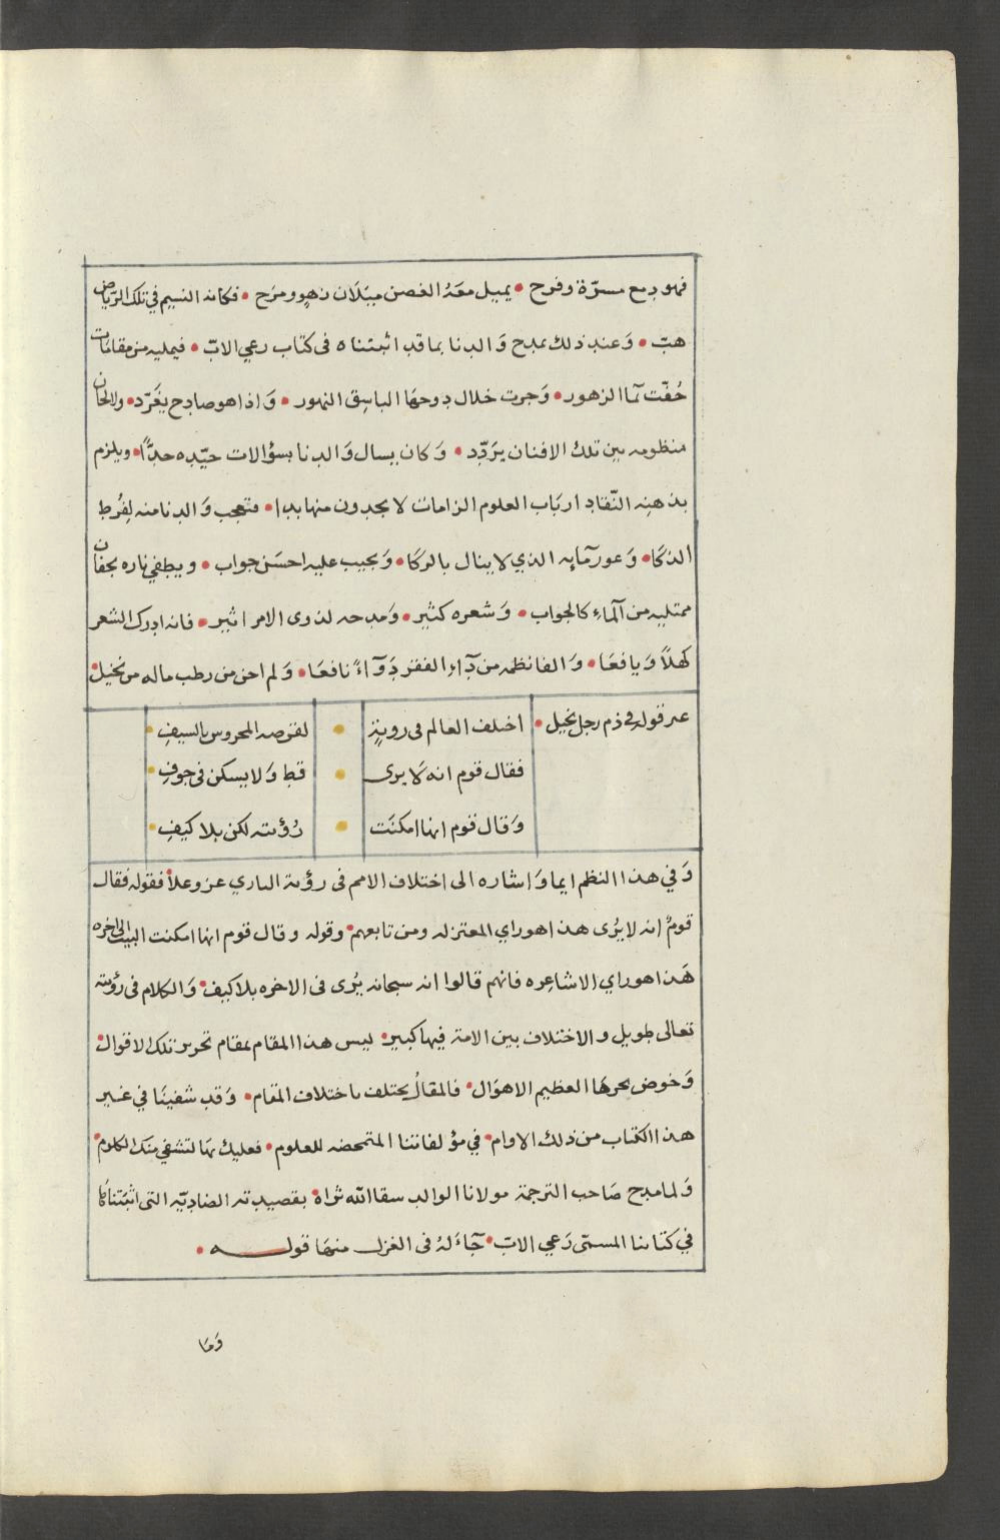 فهو مع مسرّة وفرح • يميل معَهُ الغصن ميَلَان زهوٍ ومرَح • فكانه النسيم في تلك الريّاض
هبّ • وَعند ذلك مدح وَالدنا بما قد اثبتناه في كتاب رعي الابّ • فيمليه من مقامَات
حُفّت بما الزهور • وَجرت خلال دوحهَا الباسق النهور • وَاذا هو صادح يغَرّد • ولالحان
منظومه بين تلك الافنان يرَدّد • وَكان يسال وَالدنا بسؤالات جيّده جدًّا • ويلزم
بذهنه النّقاد اربَاب العلوم الزامات لا يجدون منها بدا • فتعجب وَالدنا منه لِفُرط
الذكَا • وَعور مآيه الذي لا ينال بالركَا • وَيجيب عليه احسَن جواب • ويطفي ناره بجفان
ممتليه من المَاء كالجواب • وَشعره كثير • وَمدحه لذوى الامر اثير • فانه ادرك الشعر
كهلاً وَيافعَا • وَالفا نظمه من دَآء الفقر دَوَآءً نافعَا • وَلم احن من رطب ماله من نخيل •
غير قوله في ذم رجل بخيل • اختلف العالم في رويةٍ • لقرصه المحروس بالسيفِ •
فقال قوم انه لَا يرى • قط وَلا يسكن في جوفِ •
وَقال قوم انها امكنَت • رُؤيته لكن بلا كيفِ •
وَفي هذا النظم ايما وَاشاره الى اختلاف الامم في رؤية الباري عز وعلا • فقوله فقال
قومٌ انه لا يُرى هذا هو راي المعتزله ومن تابعهم • وقوله وقال قوم انها امكنت البيت الى اخره
هَذا هو راي الاشاعِره فانهم قالوا انه سبحانه يُرى في الاخره بلا كيف • وَالكلام في رؤيته
تعالى طويل والاختلاف بين الامة فيها كبير • ليس هذا المقام بمقام تحرير تلك الاقوال •
وَخوض بحرهَا العظيم الاهوَال • فالمقالُ يختلف باختلاف المَقام • وَقد شفينَا في غير
هذا الكتاب من ذلك الاوام • في مؤلفاتنا المتمحضه للعلوم • فعليك بهَا لتشفي منك الكلوم •
وَلما مدح صَاحب الترجمة مولانا الوالد سقا الله ثراهُ • بقصيدته الضاديّه التى اثبَتناهَا
في كتابنا المسمّى رَعي الابّ • جَآءَ لهُ في الغزل منهَا قولـــه •
وَمَا